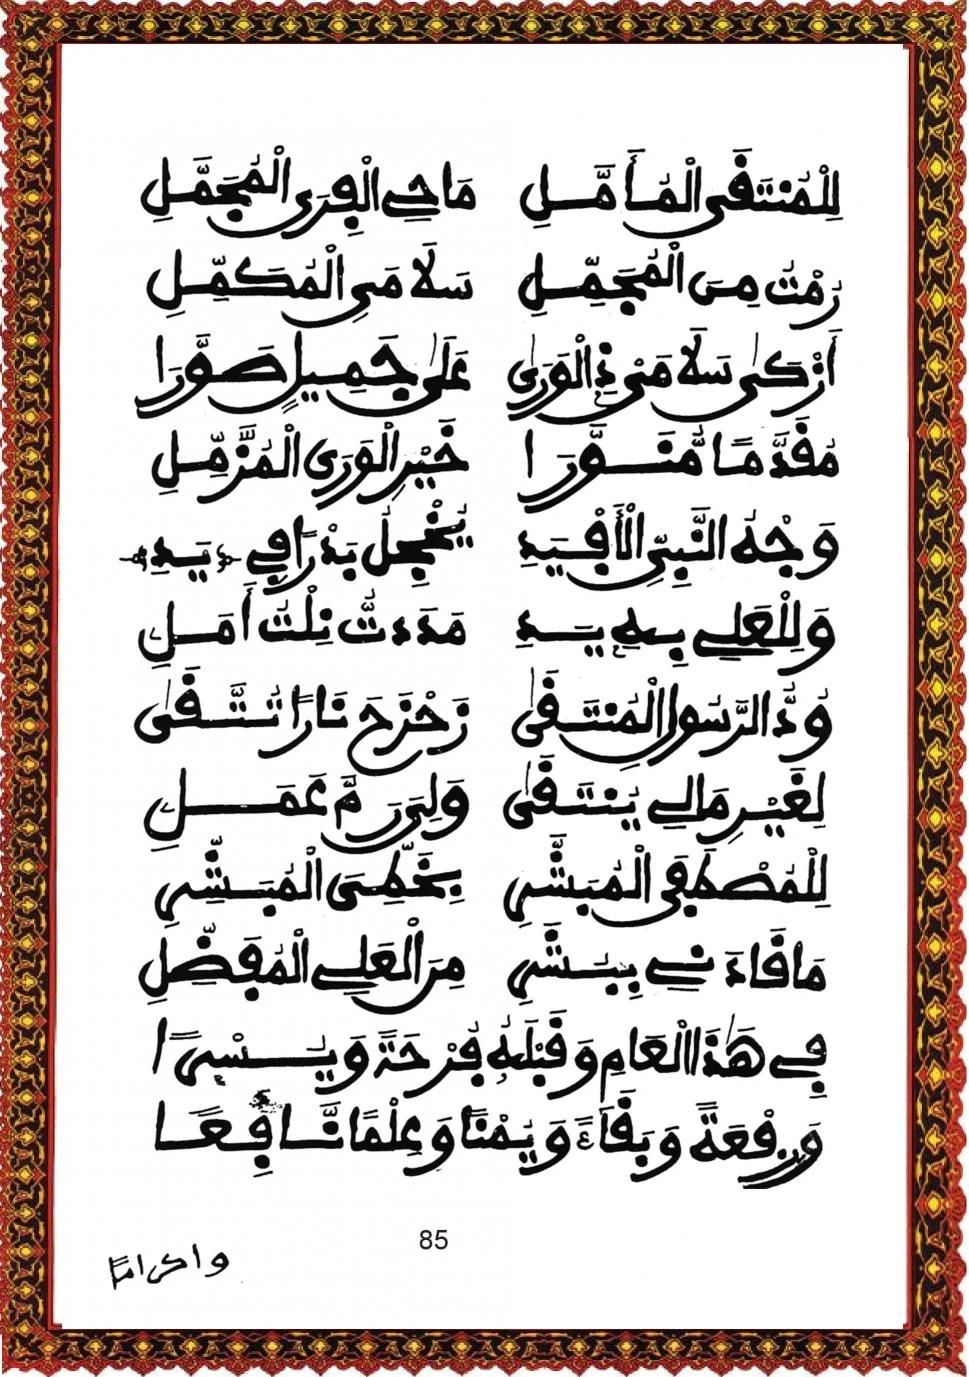 لِلْمُنتَقَى الْمُأَمَّلِ مَاحِي الْفِرَى الْمُجَمَّلِ
رُمْتُ مِنَ الْمُجَمِّلِ سَلَامَيِ الْمُكَمِّلِ
أَزْكَى سَلَامَيْ ذِي الْوَرَى عَلَى جَمِيلٍ صُوَّرَا
مُقَدَّمًا مُّنَوَّرَا خَيْرِ الْوَرَى الْمُزَّمِّلِ
وَجْهُ النَّبِيِّ الْأَفْيَدِ يُخْجِلُ بَدْرًا فِي يَدِ
وَلِلْعَلِي بِهِ يَدِ مَدَدتُّ نِلْتُ أَمَلِ
وُدُّ الرَّسُولِ الْمُنتَقَى زَحْزَحَ نَارًا تُتَّقَى
لِغَيْرِ مَالِي يَنتَقَى وَلِيَ رَمَّ عَمَلِ
لِلْمُصْطَفَى الْمُبَشَّرِ بِخَطِّيَ الْمُبَشِّرِ
مَا قَادَ نِي بِبَشَرِ مِنَ الْعَلِي الْمُفَضِّلِ
فِي هَذَا الْعَامِ وَقَبْلَهُ فَرْحَةً وَيُسْرًا
وَرِفْعَةً وَبَقَاءً وَيُمْنًا وَعِلْمًا نَّافِعًا
85
واكراما